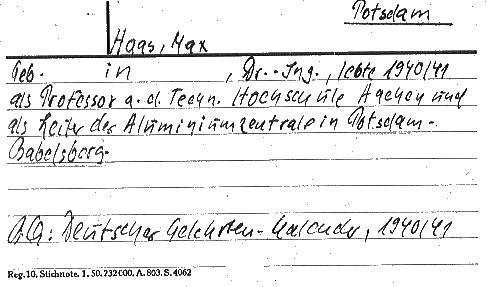 Potsdam
Haas, Max
Geb. in , Dr.-Ing., lebte 1940/41
als Professor a. d. Techn. Hochschule Aachen und
als Leiter der Aluminiumzentrale in Potsdam-
Babelsberg.
Qu: Deutscher Gelehrten-Kalender, 1940/41
Reg. 10. Stichnote. 1. 50. 232 000. A. 803. S. 4062